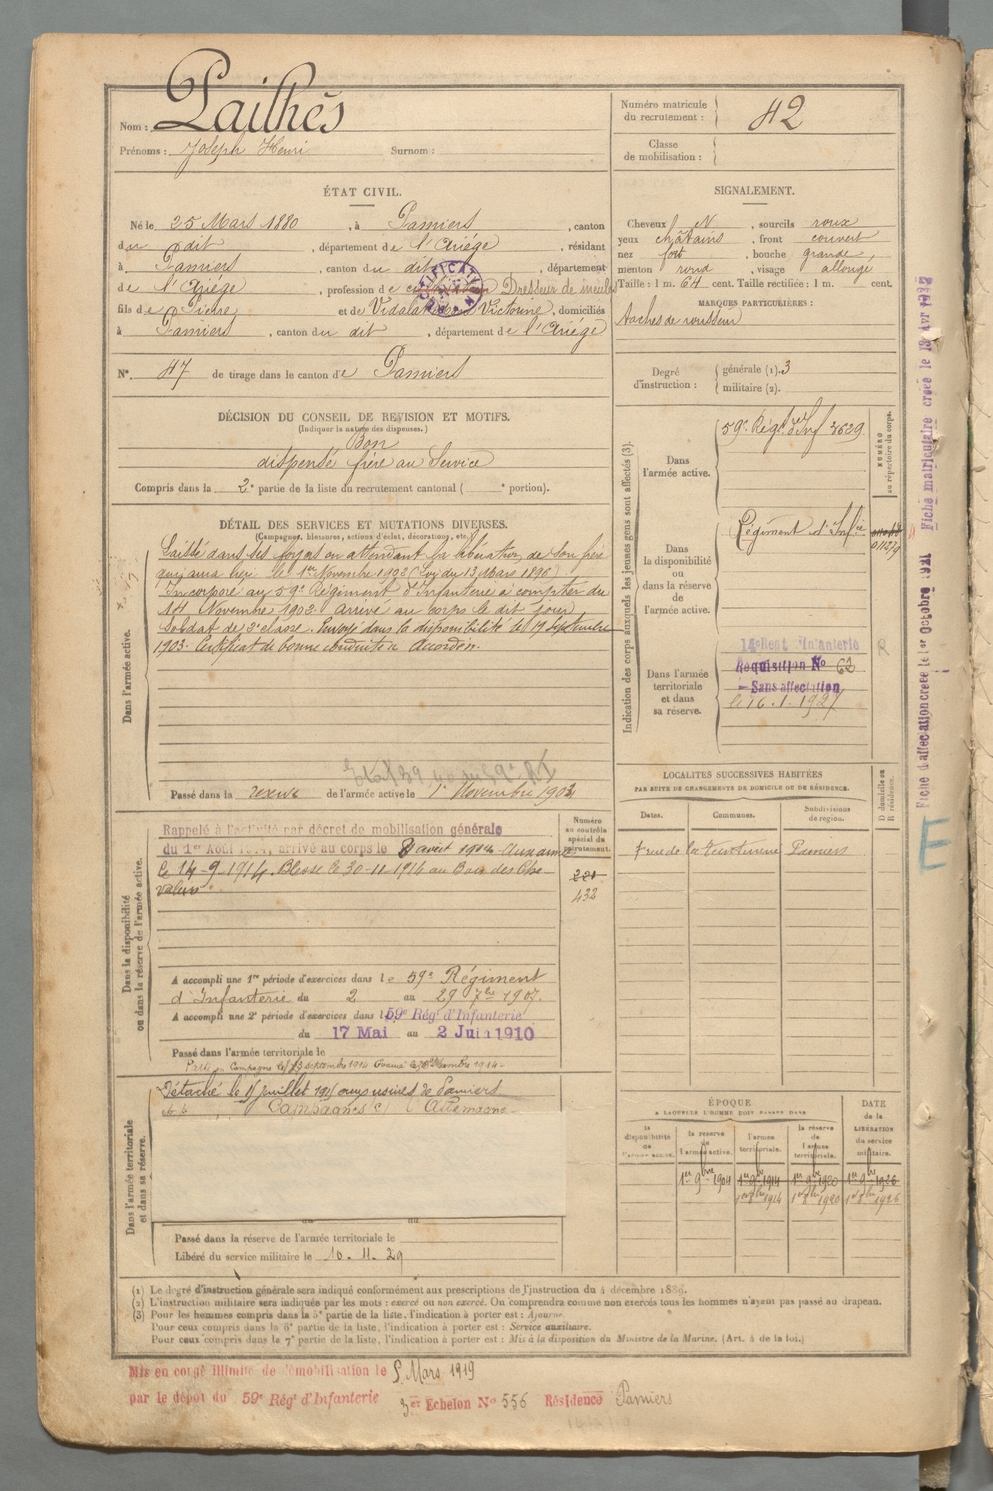 Nom : Pailhès
Prénoms : Joseph Henri Surnom :
Numéro matricule du recrutement : 42
Classe de mobilisation :
ÉTAT CIVIL.
Né le 25 Mars 1880, à Pamiers, canton
du dit, département de l'Ariége, résidant
à Pamiers, canton du dit, département
de l'Ariége, profession de Dresseur de meules
fils de Pierre et de Victorine, domiciliés
à Pamiers, canton du dit, département de l'Ariége
N° 47 de tirage dans le canton de Pamiers
SIGNALEMENT.
Cheveux N, sourcils roux
yeux châtains, front couvert
nez fort, bouche grande,
menton rond, visage allongé
Taille : 1 m. 64 cent. Taille rectifiée : 1 m. cent.
MARQUES PARTICULIÈRES :
taches de rousseur
Degré d'instruction : générale (1). 3
militaire (2).
DÉCISION DU CONSEIL DE REVISION ET MOTIFS.
(Indiquer la nature des dispenses.)
Bon
dispensé frère au Service
Compris dans la 2e partie de la liste du recrutement cantonal ( e portion).
DÉTAIL DES SERVICES ET MUTATIONS DIVERSES.
(Campagnes, blessures, actions d'éclat, décorations, etc.)
Dans l'armée active.
Laissé dans ses foyers en attendant la libération de son frère
qui aura lieu le 1er Novembre 1902 (Loi du 13 Mars 1896)
Incorporé au 59e Régiment d'Infanterie à compter du
14 Novembre 1902 arrivé au corps le dit jour,
Soldat de 2e classe. Envoyé dans la disponibilité le 19 Septembre
1903. Certificat de bonne conduite accordé.
Passé dans la réserve de l'armée active le 1er Novembre 1904
Indication des corps auxquels les jeunes gens sont affectés (3).
NUMÉRO au répertoire du corps.
Dans l'armée active.
59e Régt d'Inf 3629
Dans la disponibilité ou dans la réserve de l'armée active.
Régiment d'Infie
Dans l'armée territoriale et dans sa réserve.
14e Regt Infanterie
Requisition No 62
Sans affectation
le 16.1.1927
R
LOCALITÉS SUCCESSIVES HABITÉES
PAR SUITE DE CHANGEMENTS DE DOMICILE OU DE RÉSIDENCE.
D domicile ou R résidence.
Dates. Communes. Subdivisions de région.
7 rue de la Pamiers
Dans la disponibilité ou dans la réserve de l'armée active.
Numéro au contrôle spécial du recrutement.
Rappelé à l'activité par décret de mobilisation générale
du 1er Août 1914, arrivé au corps le 8 août 1914 Aux armées
le 14-9-1914. Blessé le 30-11-1914 au Bois des Che-
valiers
432
A accompli une 1re période d'exercices dans le 59e Régiment
d'Infanterie du 2 au 29 7bre 1907.
A accompli une 2e période d'exercices dans le 59e Régt d'Infanterie
du 17 Mai au 2 Juin 1910
Passé dans l'armée territoriale le
Dans l'armée territoriale et dans sa réserve.
Détaché le juillet aux usines de Pamiers
Campagnes Allemagne
Passé dans la réserve de l'armée territoriale le
Libéré du service militaire le 10.11.29
ÉPOQUE
A LAQUELLE L'HOMME DOIT PASSER DANS
DATE de la LIBÉRATION du service militaire.
la disponibilité de l'armée active. la réserve de l'armée active. l'armée territoriale. la réserve de l'armée territoriale.
1er 9bre 1904 1er 9bre 1914 1er 9bre 1920 1er 9bre 1926
1er 8bre 1914 1er 8bre 1920 1er 8bre 1926
(1) Le degré d'instruction générale sera indiqué conformément aux prescriptions de l'instruction du 4 décembre 1886.
(2) L'instruction militaire sera indiquée par les mots : exercé ou non exercé. On comprendra comme non exercés tous les hommes n'ayant pas passé au drapeau.
(3) Pour les hommes compris dans la 5e partie de la liste, l'indication à porter est : Ajourné.
Pour ceux compris dans la 6e partie de la liste, l'indication à porter est : Service auxiliaire.
Pour ceux compris dans la 7e partie de la liste, l'indication à porter est : Mis à la disposition du Ministre de la Marine. (Art. 4 de la loi.)
Mis en congé illimité de démobilisation le 5 Mars 1919
par le dépôt du 59e Régt d'Infanterie 3e Echelon No 556 Résidence Pamiers
Fiche d'affectation créée le 1er Octobre 1921
Fiche matriculaire créée le
E